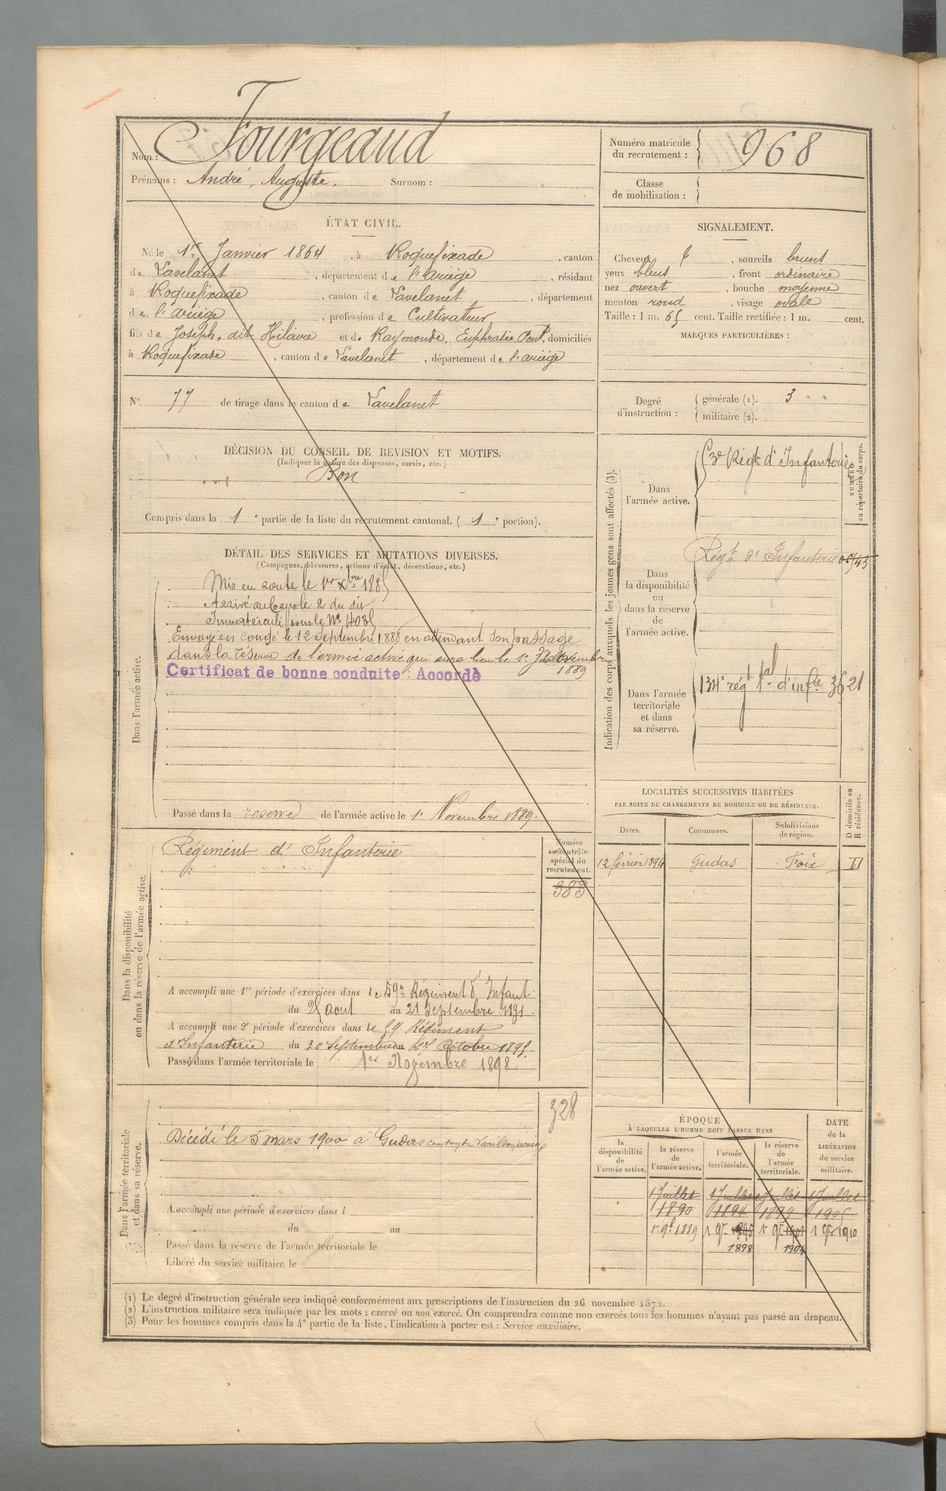 Nom : Fourgeaud
Prénoms : André, Auguste. Surnom :
Numéro matricule du recrutement : 968
Classe de mobilisation :
ÉTAT CIVIL.
Né le 1er Janvier 1864, à Roquefixade, canton
de Lavelanet, département de l'Ariège, résidant
à Roquefixade, canton de Lavelanet, département
de l'Ariège, profession de Cultivateur
fils de Joseph, dit Hilaire et de Raymonde, Euphrasie, domiciliés
à Roquefixade, canton de Lavelanet, département de l'Ariège
SIGNALEMENT.
Cheveux, sourcils bruns
yeux bleus, front ordinaire
nez ouvert, bouche moyenne
menton rond, visage ovale
Taille : 1 m. 65 cent. Taille rectifiée : 1 m. cent.
MARQUES PARTICULIÈRES :
N° 77 de tirage dans le canton de Lavelanet
Degré d'instruction : générale (1). 3
militaire (2).
DÉCISION DU CONSEIL DE REVISION ET MOTIFS.
(Indiquer la nature des dispenses, sursis, etc.)
Bon
Compris dans la 1e partie de la liste du recrutement cantonal. (1e portion).
DÉTAIL DES SERVICES ET MUTATIONS DIVERSES.
(Campagnes, blessures, actions d'éclat, décorations, etc.)
Dans l'armée active.
Mis en route le 1er Xbre 1885
Arrivé au Corps le 2 du dit
Immatriculé sous le N°
Envoyé en congé le 12 Septembre 1888 en attendant son passage
dans la réserve de l'armée active qui aura lieu le 1er Novembre
1889
Certificat de bonne conduite : Accordé
Passé dans la réserve de l'armée active le 1er Novembre 1889.
Indication des corps auxquels les jeunes gens sont affectés (3).
NUMÉROS au répertoire du corps.
Dans l'armée active.
Régt d'Infanterie
Dans la disponibilité ou dans la réserve de l'armée active.
Régt d'Infanterie
Dans l'armée territoriale et dans sa réserve.
134e régt tal d'infie 3621
LOCALITÉS SUCCESSIVES HABITÉES
PAR SUITE DE CHANGEMENTS DE DOMICILE OU DE RÉSIDENCE.
D domicile ou R résidence.
Dates. Communes. Subdivisions de région.
12 février 1894 Gudas Foix D
Dans la disponibilité ou dans la réserve de l'armée active.
Régiment d'Infanterie
Numéro au contrôle spécial du recrutement.
383
A accompli une 1re période d'exercices dans le 59e Régiment d'Infant
du 25 août au 21 septembre 1891
A accompli une 2e période d'exercices dans le 59 Régiment
d'Infanterie du 30 septembre au Octobre 1895
Passé dans l'armée territoriale le 1er Novembre 1898.
Dans l'armée territoriale et dans sa réserve.
328
Décédé le 5 mars 1900 à Gudas
A accompli une période d'exercices dans l
du au
Passé dans la réserve de l'armée territoriale le
Libéré du service militaire le
ÉPOQUE
À LAQUELLE L'HOMME DOIT PASSER DANS
la disponibilité de l'armée active.
la réserve de l'armée active.
l'armée territoriale.
la réserve de l'armée territoriale.
DATE de la LIBÉRATION du service militaire.
1 Juillet 1 Juillet 1 Juillet 1 Juillet
1890 1894 1899 1905
1er 9bre 1889 1 9bre 1895 1er 9bre 1 9bre 1910
1898 1904
(1) Le degré d'instruction générale sera indiqué conformément aux prescriptions de l'instruction du 26 novembre 1872.
(2) L'instruction militaire sera indiquée par les mots : exercé ou non exercé. On comprendra comme non exercés tous les hommes n'ayant pas passé au drapeau.
(3) Pour les hommes compris dans la 4e partie de la liste, l'indication à porter est : Service auxiliaire.